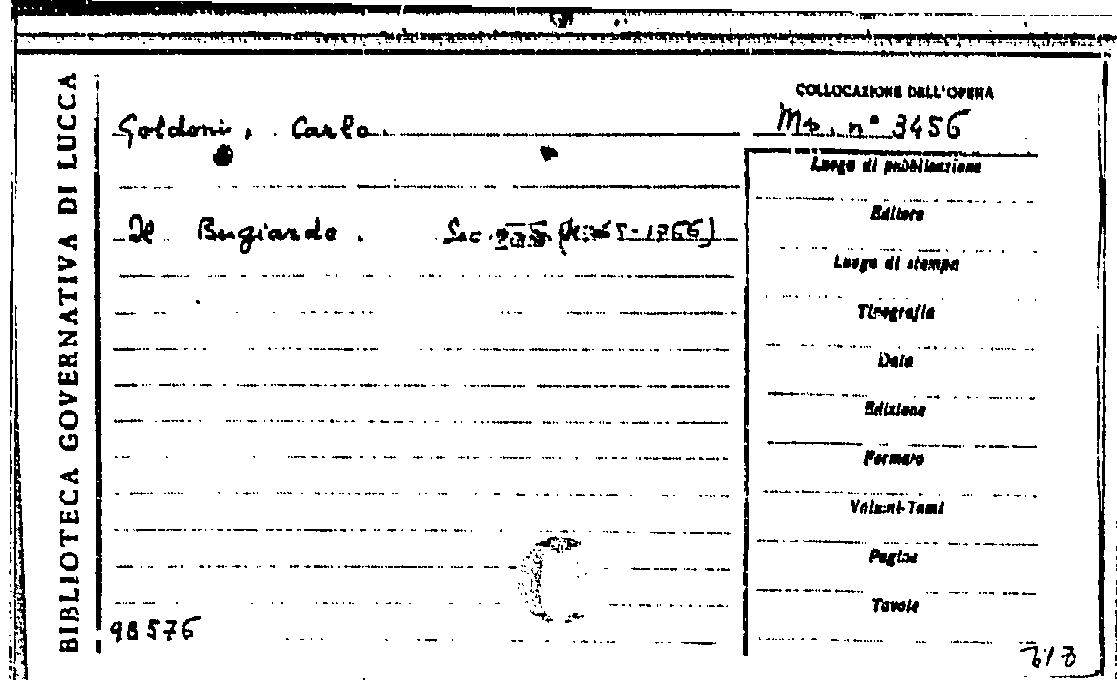 BIBLIOTECA GOVERNATIVA DI LUCCA
COLLOCAZIONE DELL'OPERA
Ms. n° 3456
Goldoni, Carlo.
Il Bugiardo. Sec. 1765-1766)
Luogo di pubblicazione
Editore
Luogo di stampa
Tipografia
Data
Edizione
Formato
Volumi-Tomi
Pagine
Tavole
98576